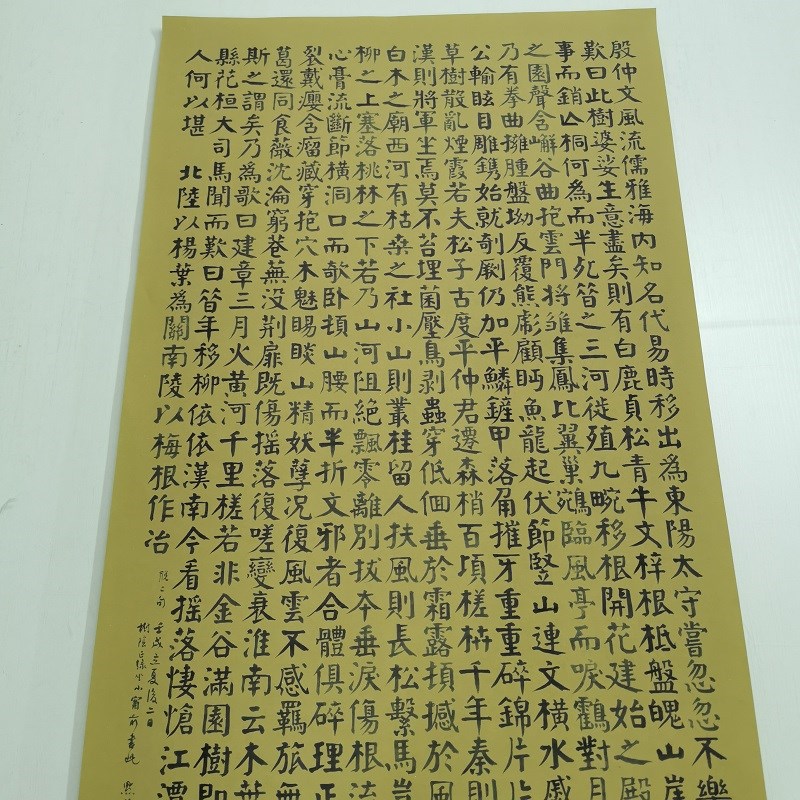 殷仲文風流儒雅海內知名代易時移出為東陽太守嘗忽忽不樂
歎曰此樹婆娑生意盡矣則有白鹿貞松青牛文梓根柢盤魄山崖
事而銷亡桐何為而半死昔之三河徙殖九畹移根開花建始之殿
之園聲含嶰谷曲抱雲門將雛集鳳比翼巢鵷臨風亭而唳鶴對月
乃有拳曲擁腫盤坳反覆熊彪顧盻魚龍起伏節竪山連文橫水蹙
公輸眩目雕鐫始就剞劂仍加平鱗鏟甲落角摧牙重重碎錦片片
草樹散亂煙霞若夫松子古度平仲君遷森梢百頃槎枿千年秦則
漢則將軍坐焉莫不苔埋菌壓鳥剥蟲穿低佪垂於霜露頓撼於風
白木之廟西河有枯桑之社小山則叢桂留人扶風則長松繫馬豈
柳之上塞落桃林之下若乃山河阻絕飄零離別拔本垂淚傷根流
心膏流斷節橫洞口而欹卧頓山腰而半折文邪者合體俱碎理正
裂戴癭含瘤藏穿抱穴木魅賜睒山精妖孽況復風雲不感羈旅無
葛還同食薇沈淪窮巷蕪没荆扉既傷搖落復嗟變衰淮南云木葉
斯之謂矣乃為歌曰建章三月火黃河千里槎若非金谷滿園樹即
縣花桓大司馬聞而歎曰昔年移柳依依漢南今看搖落悽愴江潭
人何以堪 北陸以楊葉為關南陵以梅根作冶
脫二句
壬戌立夏後二日
書此